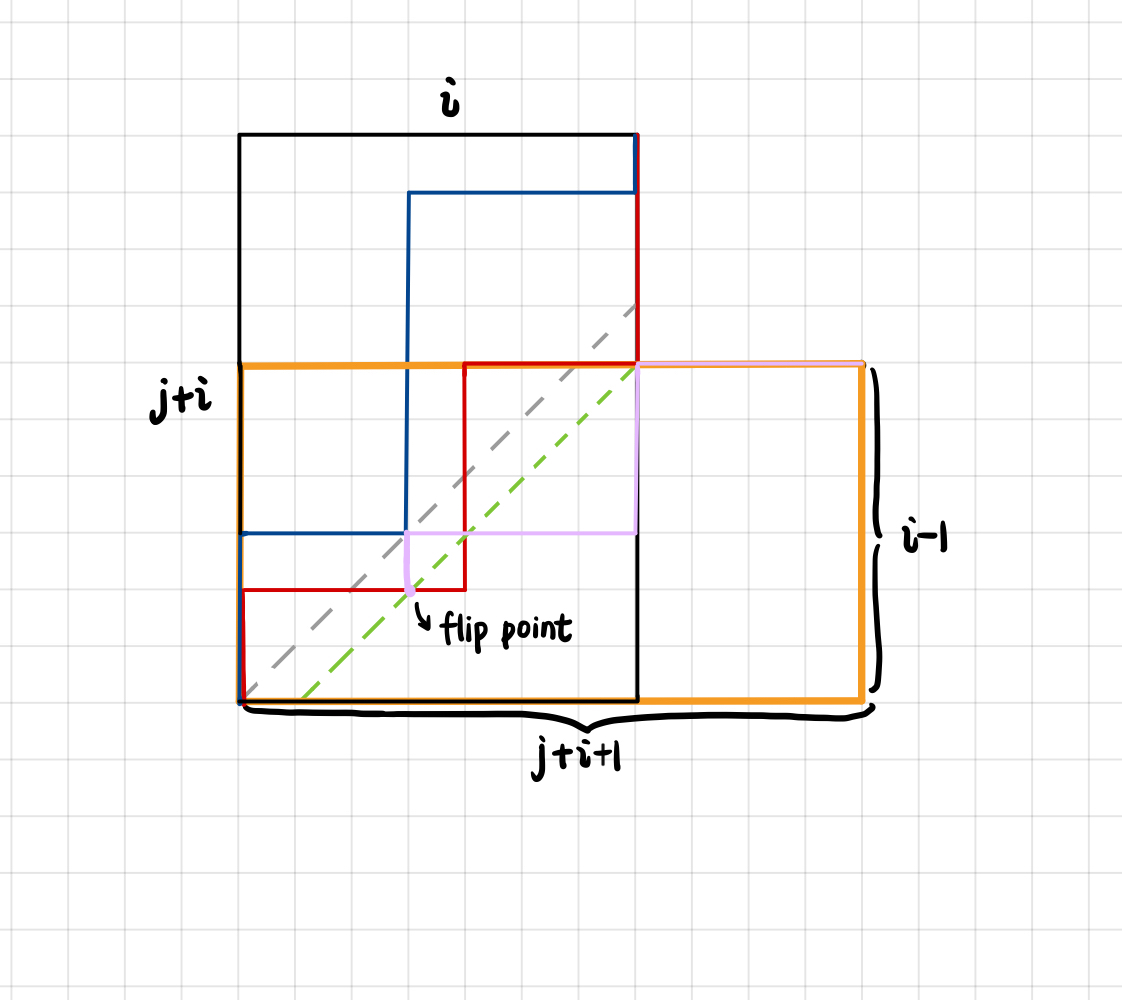 i
j+i
i-1
flip point
j+i+1